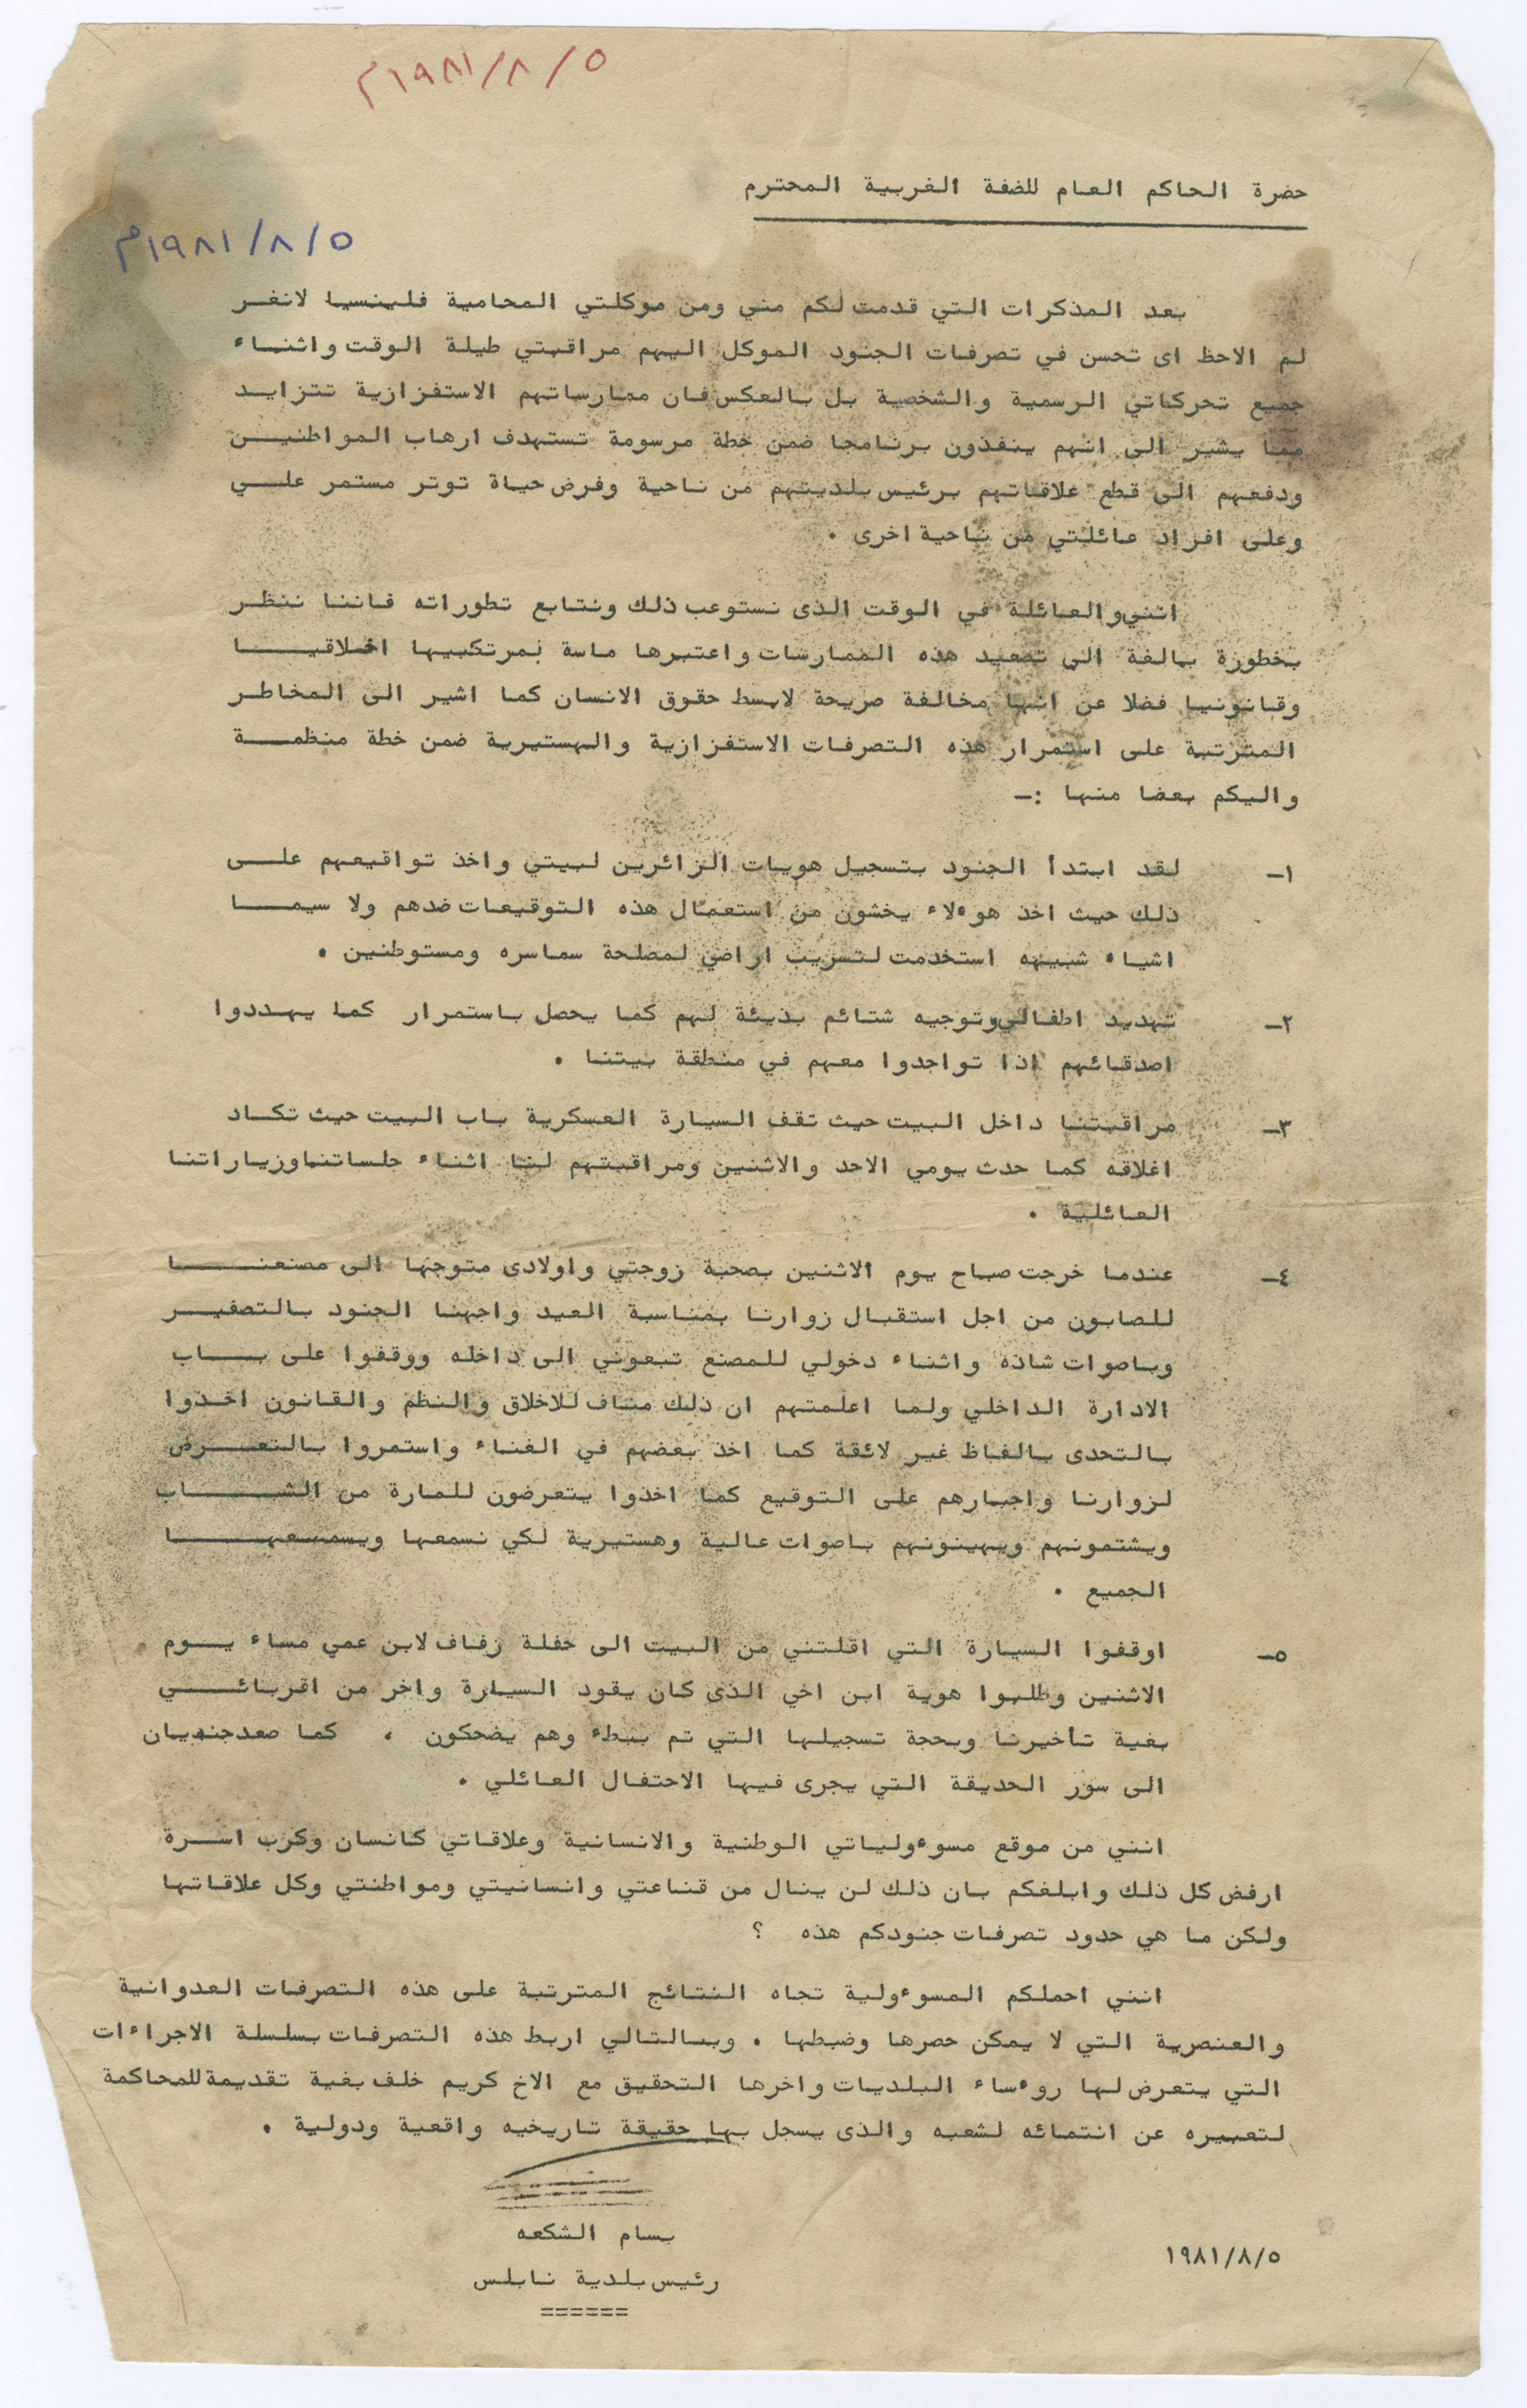 ١٩٨١/٨/٥م
حضرة الحاكم العام للضفة الغربية المحترم
١٩٨١/٨/٥م
بعد المذكرات التي قدمت لكم مني ومن موكلتي المحامية فلينسيا لانغر
لم الاحظ اى تحسن في تصرفات الجنود الموكل اليهم مراقبتي طيلة الوقت واثناء
جميع تحركاتي الرسمية والشخصية بل بالعكس فان ممارساتهم الاستفزازية تتزايد
مما يشير الى انهم ينفذون برنامجا ضمن خطة مرسومة تستهدف ارهاب المواطنين
ودفعهم الى قطع علاقاتهم برئيس بلديتهم من ناحية وفرض حياة توتر مستمر علي
وعلى افراد عائلتي من ناحية اخرى .
انني والعائلة في الوقت الذى نستوعب ذلك ونتابع تطوراته فاننا ننظر
بخطورة بالغة الى تصعيد هذه الممارسات واعتبرها ماسة بمرتكبيها اخلاقيا
وقانونيا فضلا عن انها مخالفة صريحة لابسط حقوق الانسان كما اشير الى المخاطر
المترتبة على استمرار هذه التصرفات الاستفزازية والهستيرية ضمن خطة منظمة
واليكم بعضا منها :-
١- لقد ابتدأ الجنود بتسجيل هويات الزائرين لبيتي واخذ تواقيعهم على
ذلك حيث اخذ هوءلاء يخشون من استعمال هذه التوقيعات ضدهم ولا سيما
اشياء شبيهه استخدمت لتسريب اراضي لمصلحة سماسره ومستوطنين .
٢- تهديد اطفالي وتوجيه شتائم بذيئة لهم كما يحصل باستمرار كما يهددوا
اصدقائهم اذا تواجدوا معهم في منطقة بيتنا .
٣- مراقبتنا داخل البيت حيث تقف السيارة العسكرية باب البيت حيث تكاد
اغلاقه كما حدث يومي الاحد والاثنين ومراقبتهم لنا اثناء جلساتنا وزياراتنا
العائلية .
٤- عندما خرجت صباح يوم الاثنين بصحبة زوجتي واولادى متوجها الى مصنعنا
للصابون من اجل استقبال زوارنا بمناسبة العيد واجهنا الجنود بالتصفير
وباصوات شاذه واثناء دخولي للمصنع تبعوني الى داخله ووقفوا على باب
الادارة الداخلي ولما اعلمتهم ان ذلك مناف للاخلاق والنظم والقانون اخذوا
بالتحدى بالفاظ غير لائقة كما اخذ بعضهم في الغناء واستمروا بالتعرض
لزوارنا واجبارهم على التوقيع كما اخذوا يتعرضون للمارة من الشباب
ويشتمونهم ويهينونهم باصوات عالية وهستيرية لكي نسمعها ويسمعها
الجميع .
٥- اوقفوا السيارة التي اقلتني من البيت الى حفلة زفاف لابن عمي مساء يوم
الاثنين وطلبوا هوية ابن اخي الذى كان يقود السيارة واخر من اقربائي
بغية تأخيرنا وبحجة تسجيلها التي تم ببطء وهم يضحكون ، كما صعد جنديان
الى سور الحديقة التي يجرى فيها الاحتفال العائلي .
انني من موقع مسوءولياتي الوطنية والانسانية وعلاقاتي كانسان وكرب اسرة
ارفض كل ذلك وابلغكم بان ذلك لن ينال من قناعتي وانسانيتي ومواطنتي وكل علاقاتها
ولكن ما هي حدود تصرفات جنودكم هذه ؟
انني احملكم المسوءولية تجاه النتائج المترتبة على هذه التصرفات العدوانية
والعنصرية التي لا يمكن حصرها وضبطها . وبالتالي اربط هذه التصرفات بسلسلة الاجراءات
التي يتعرض لها روءساء البلديات واخرها التحقيق مع الاخ كريم خلف بغية تقديمة للمحاكمة
لتعبيره عن انتمائه لشعبه والذى يسجل بها حقيقة تاريخيه واقعية ودولية .
بسام الشكعه
١٩٨١/٨/٥
رئيس بلدية نابلس
======